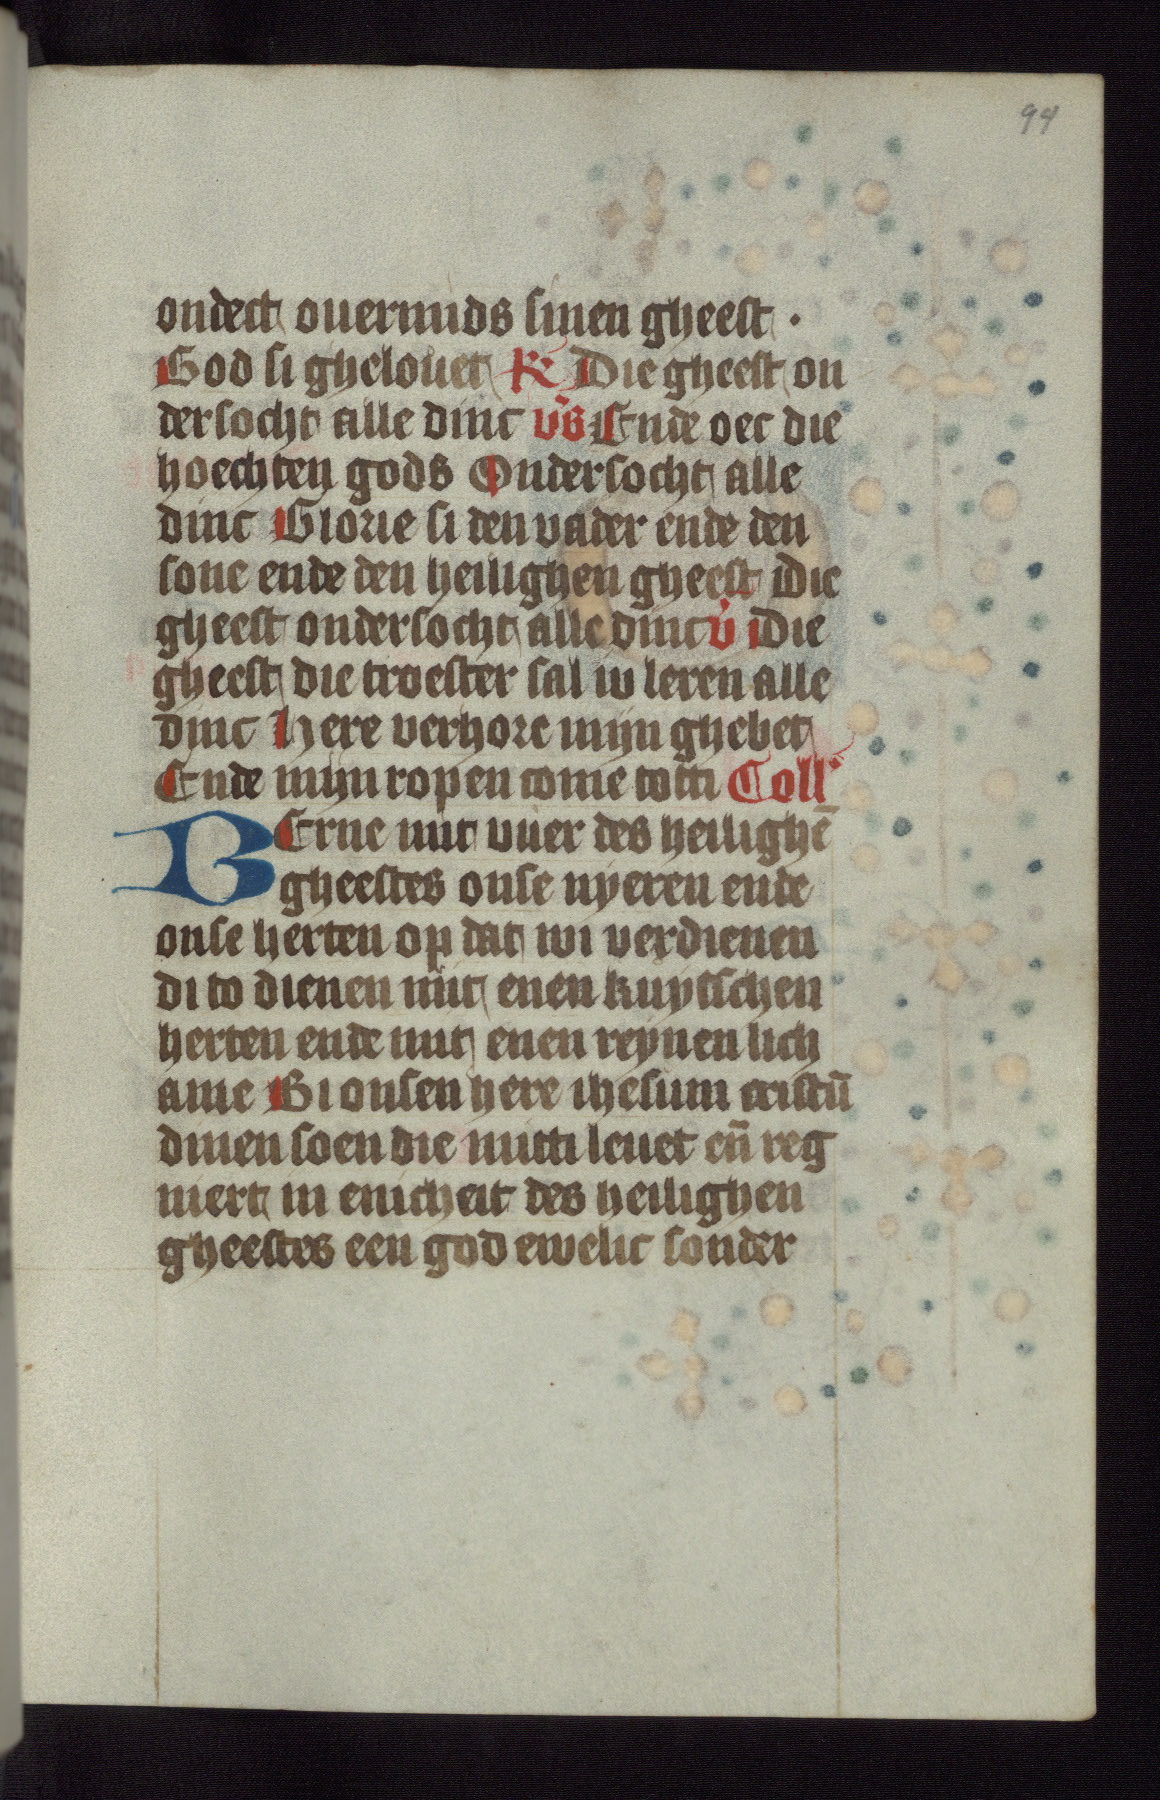 94
ondect ouermids sinen gheest .
God si ghelouet R Die gheest on
dersocht alle dinc vs Ende oec die
hoechten gods Ondersocht alle
dinc Glorie si den vader ende den
sone ende den heilighen gheest Die
gheest ondersocht alle dinc v Die
gheest die troester sal iv leren alle
dinc Here verhore mijn ghebet
Ende mijn ropen come totti Coll'
BErne mit vuer des heilighē
gheestes onse nyeren ende
onse herten op dat wi verdienen
di to dienen mit enen kuysschen
herten ende mit enen reynen lich
ame Bi onsen here ihesum cristū
dinen soen die mitti leuet en̄ reg
niert in enicheit des heilighen
gheestes een god ewelic sonder